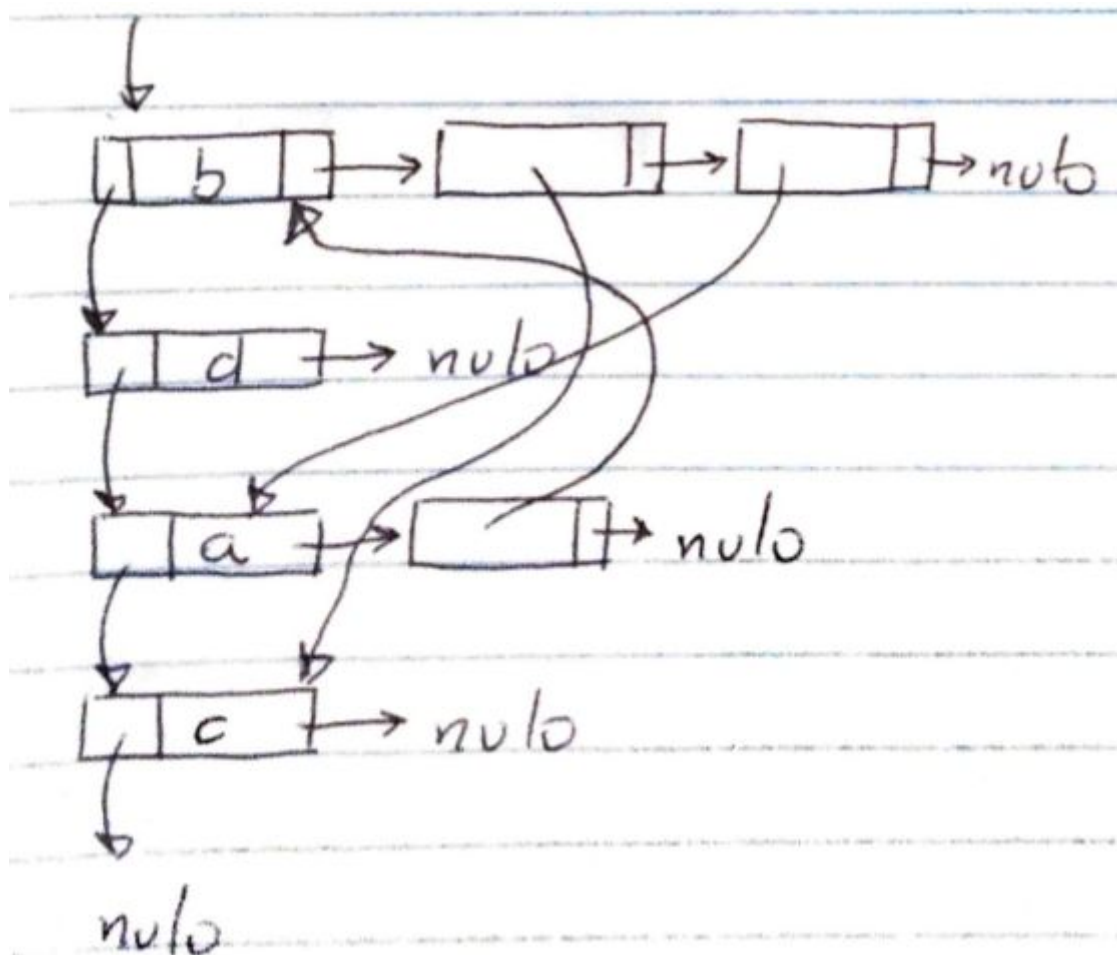 b nulo
d nulo
a nulo
c nulo
nulo